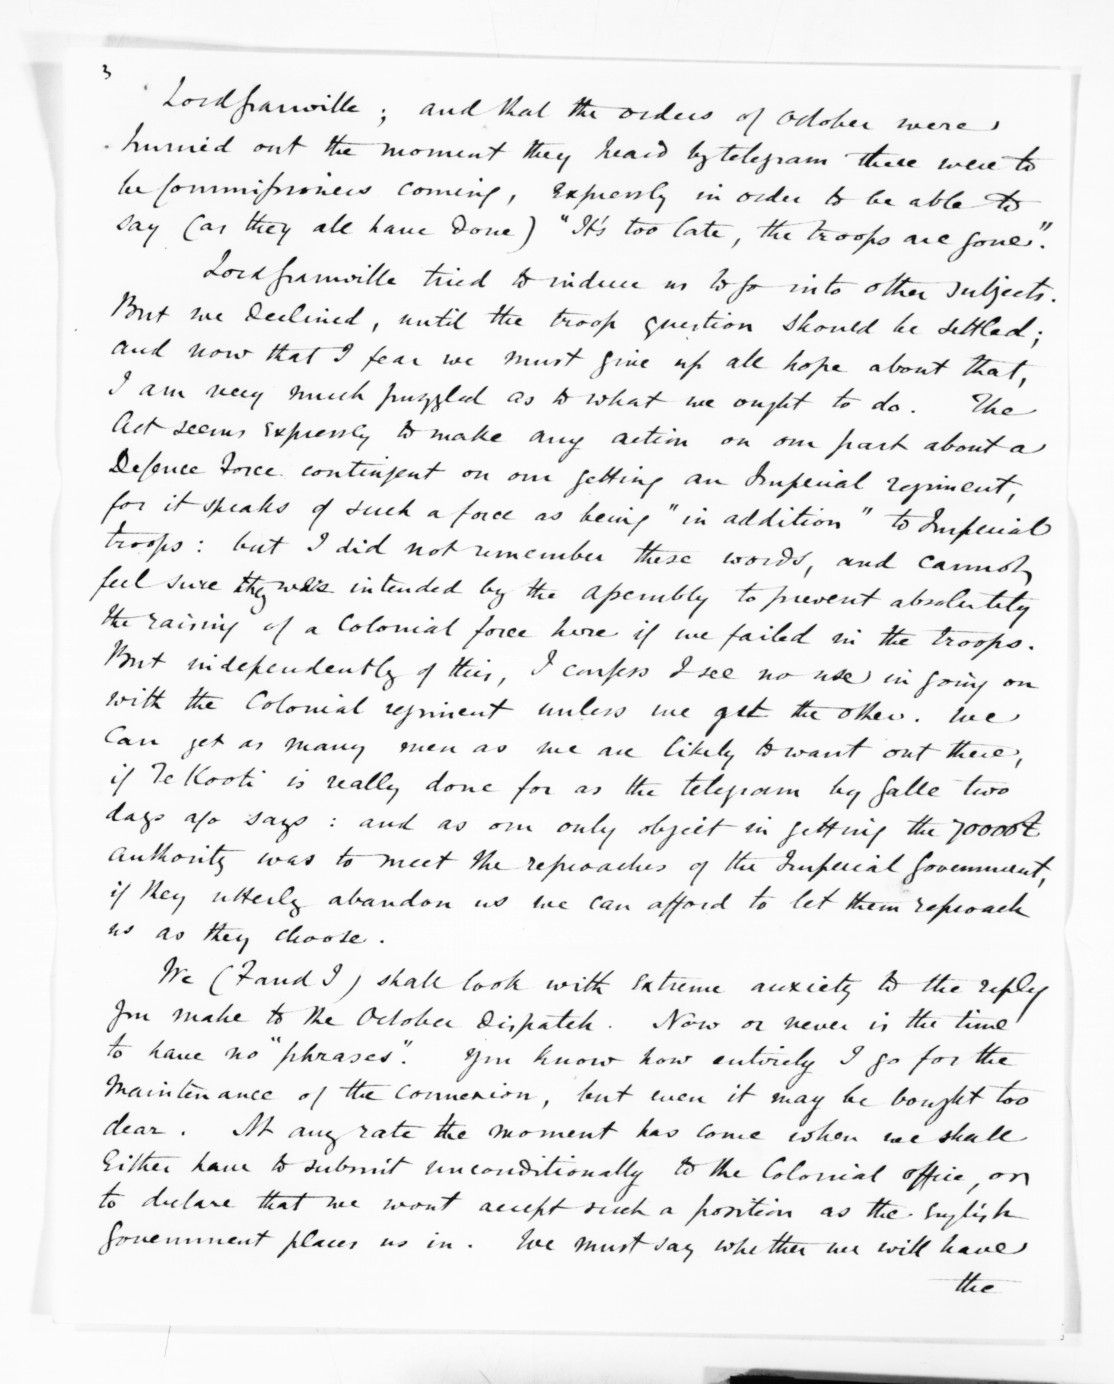 3
Lord Granville; and that the orders of October were
hurried out the moment they heard by telegram there were to
be Commissioners coming, expressly in order to be able to
say (as they all have done) "It's too late, the troops are gone".
Lord Granville tried to induce us to go into other subjects.
But we declined, until the troop question should be settled;
and now that I fear we must give up all hope about that,
I am very much puzzled as to what we ought to do. The
Act seems expressly to make any action on our part about a
Defence Force contingent on our getting an Imperial regiment,
for it speaks of such a force as being "in addition" to Imperial
troops: but I did not remember these words, and cannot
feel sure they was intended by the Assembly to prevent absolutely
the raising of a Colonial force here if we failed in the troops.
But independently of this, I confess I see no use in going on
with the Colonial regiment unless we get the other. We
can get as many men as we are likely to want out there,
if Te Kooti is really done for as the telegram by Galle two
days ago says: and as our only object in getting the 70000£
authority was to meet the reproaches of the Imperial Government,
if they utterly abandon us we can afford to let them reproach
us as they choose.
We (F and I) shall look with extreme anxiety to the reply
you make to the October Dispatch. Now or never is the time
to have no "phrases". You know how entirely I go for the
maintenance of the connexion, but even it may be bought too
dear. At any rate the moment has come when we shall
either have to submit unconditionally to the Colonial office, or
to declare that we wont accept such a position as the English
Government places us in. We must say whether we will have
the